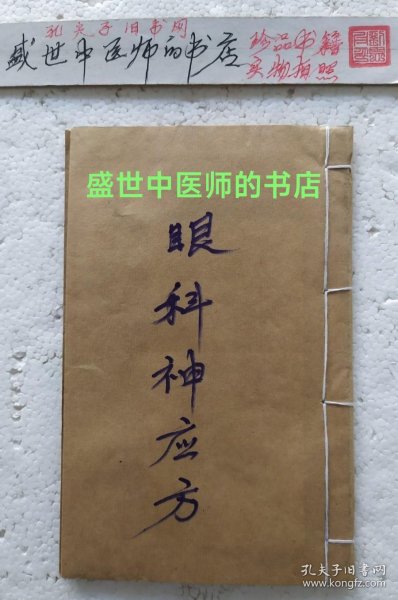 孔夫子旧书网
盛世中医师的书店
珍品书籍
实物拍照
盛世中医师的书店
眼科神应方
孔夫子旧书网
www.kongfz.com